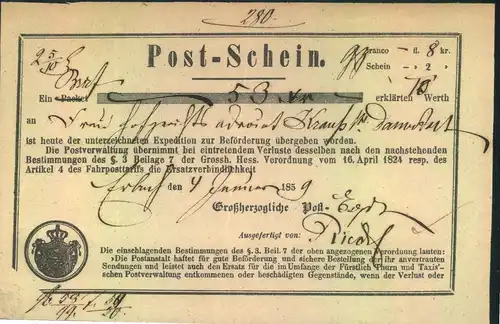 280.
Post-Schein.
Franco — fl. 8 kr.
Schein — „ 2 „
10
Ein Packet 53 erklärten Werth
an Frau Hofgerichts Advocat Darmstadt
ist heute der unterzeichneten Expedition zur Beförderung übergeben worden.
Die Postverwaltung übernimmt bei eintretendem Verluste desselben nach den nachstehenden
Bestimmungen des §. 3 Beilage 7 der Grossh. Hess. Verordnung vom 16. April 1824 resp. des
Artikel 4 des Fahrposttarifs die Ersatzverbindlichkeit
Erbach den 4 Januar 1859
Großherzogliche Post- Exp.
Ausgefertigt von:
Die einschlagenden Bestimmungen des §. 3. Beil. 7 der oben angezogenen Verordnung lauten:
›Die Postanstalt haftet für gute Beförderung und sichere Bestellung der ihr anvertrauten
Sendungen und leistet auch den Ersatz für die im Umfange der Fürstlich Thurn und Taxis'-
schen Postverwaltung entkommenen oder beschädigten Gegenstände, wenn der Verlust oder